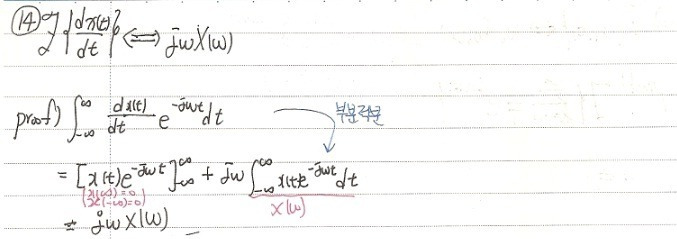 ⑭ ℱ{dx(t)/dt} ⟺ jωX(ω)
proof) ∫_{-∞}^{∞} dx(t)/dt e^{-jωt} dt 부분적분
= [x(t)e^{-jωt}]_{-∞}^{∞} + jω ∫_{-∞}^{∞} x(t)e^{-jωt} dt
(x(∞)=0
x(-∞)=0) X(ω)
= jωX(ω)